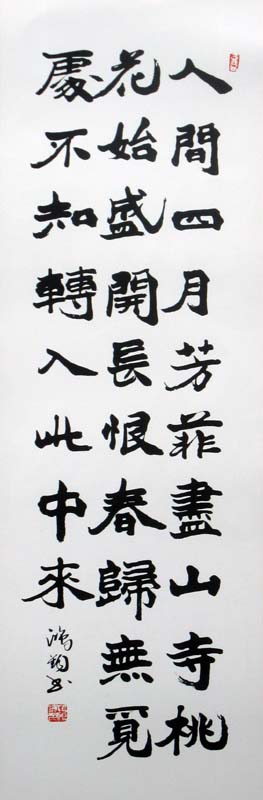 人間四月芳菲盡山寺桃
花始盛開長恨春歸無覓
處不知轉入此中來